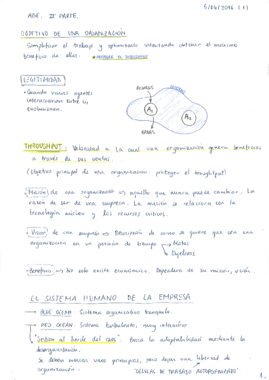 5/04/2016 (1)
ADE. II PARTE.
OBJETIVO DE UNA ORGANIZACIÓN
Simplificar el trabajo y optimizarlo intentando obtener el máximo
beneficio de ellos.
LEGITIMIDAD
• Cuando varios agentes
interaccionan entre sí
A1
A2
THROUGHPUT: Velocidad a la cual una organización genera beneficios
a través de sus ventas.
(Objetivo principal de una organización: proteger el throughput)
Misión de una organización ⇒ aquello que nunca puede cambiar. La
razón de ser de una empresa. La misión se relaciona con la
tecnología núcleo y los recursos
Visión de una empresa ⇒ Descripción de como se quiere que sea una
organización en un período de tiempo
Metas
Objetivos
Beneficio ⇒ no solo existe económico. Dependerá de su misión, visión.
EL SISTEMA HUMANO DE LA EMPRESA
→ BLUE OCEAN: Sistema organizativo tranquilo.
→ RED OCEAN: Sistema turbulento, muy interactivo
"Gestión al borde del caos": busca la adaptabilidad mediante la
desorganización.
Se deben marcar unos principios, pero dejar una libertad de
organización. "CÉLULAS DE TRABAJO AUTORGANIZADO"
1.